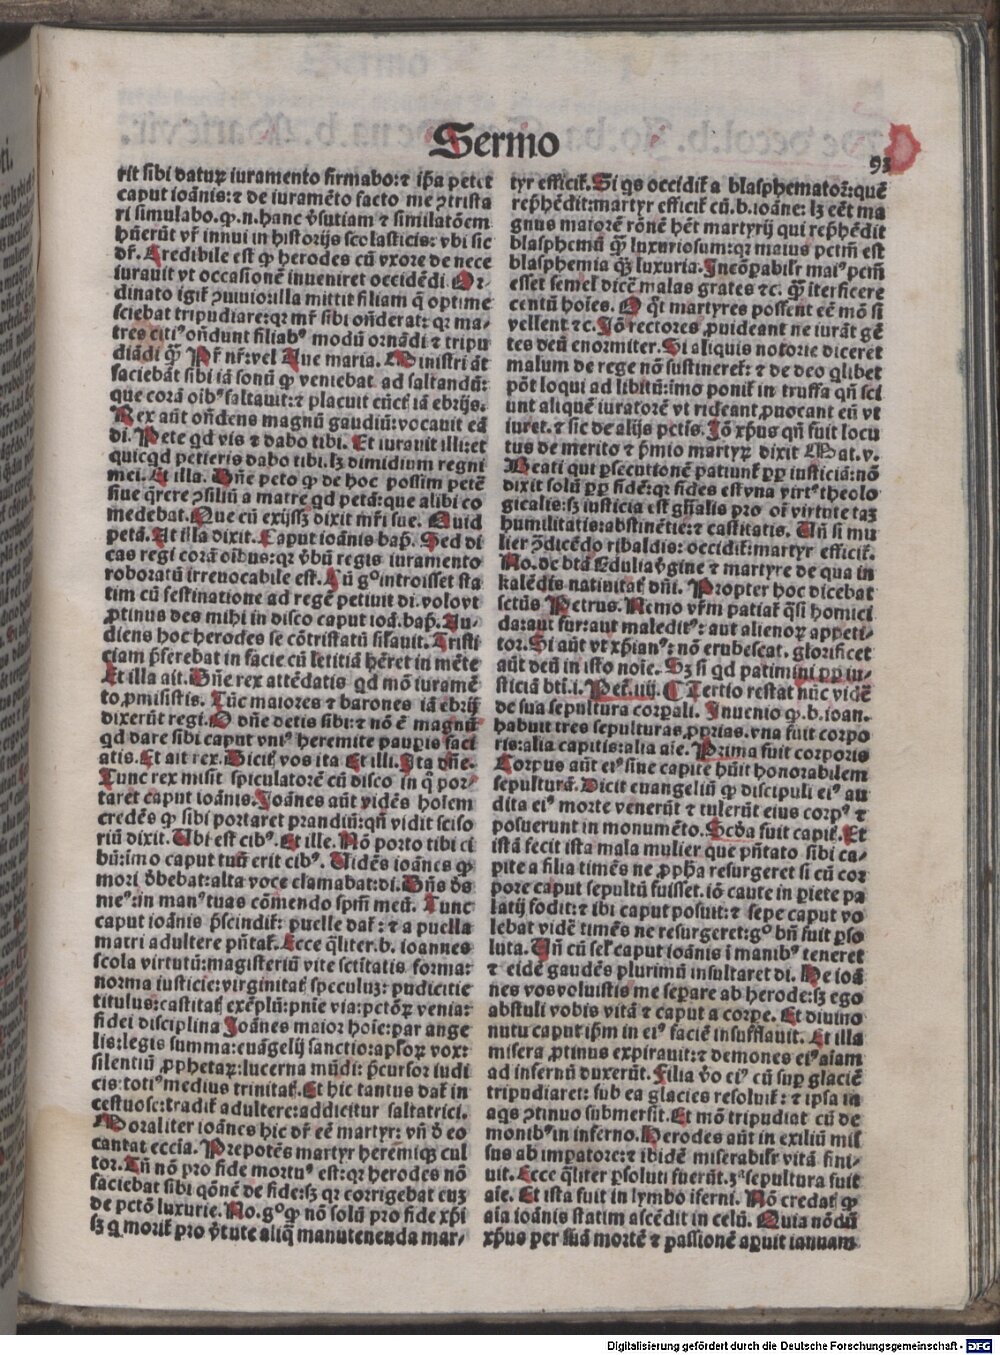 Sermo
93
rit sibi daturꝫ iuramento firmabo: ⁊ ip̄a petet
caput ioānis: ⁊ de iuramēto facto me ꝯtrista
ri simulabo. ꝙ .n. hanc v̄sutiam ⁊ similatōem
hūerūt vr̄ innui in historijs scolasticis: vbi sic
dr̄. Credibile est ꝙ herodes cū vxore de nece
iurauit vt occasionē inueniret occidēdi. Or-
dinato igit̄ ꝯuiuio: illa mittit filiam q̄ optime
sciebat tripudiare: qꝛ mr̄ sibi oñderat: qꝛ ma-
tres citiꝰ oñdunt filiabꝰ modū ornādi ⁊ tripu
diādi ꝙ̄ Pr̄ nr̄: vel Aue maria. Ministri āt
faciebāt sibi iā sonū ꝙ veniebat ad saltandū:
que corā oibꝰ saltauit: ⁊ placuit cūctꝭ iā ebrijs.
Rex aūt oñdens magnū gaudiū: vocauit eā
di. Pete qd vis ⁊ dabo tibi. Et iurauit illi: et
quicqd petieris dabo tibi. lꝫ dimidium regni
mei. Et illa. Dñe peto ꝙ de hoc possim petē
siue q̄rere ꝯsiliū a matre qd petā: que alibi co
medebat. Que cū exijssꝫ dixit mr̄i sue. Quid
petā. At illa dixit. Caput ioānis bap̄. Sed di
cas regi corā oībus: qꝛ v̄bū regis iuramento
roboratū irreuocabile est. Cū gͦ introisset sta
tim cū festinatione ad regē petiuit di. volo vt
ꝓtinus des mihi in disco caput ioā. bap̄. Au-
diens hoc herodes se cōtristatū sil̄auit. Tristi
ciam p̄ferebat in facie cū letitiā hēret in mēte
Et illa ait. Dñe rex attēdatis qd mō iuramē
to ꝓmisistis. Tūc maiores ⁊ barones iā ebrij
dixerūt regi. O dñe detis sibi: ⁊ nō ē magnū
qd dare sibi caput vniꝰ heremite paupis faci
atis. Et ait rex. Dicitꝭ vos ita Et illi. Ita dñe.
Tunc rex misit spiculatorē cū disco in q̄ por-
taret caput ioānis. Joānes aūt vidēs hoīem
credēs ꝙ sibi portaret prandiū: qñ vidit sciso
riū dixit. Ubi est cibꝰ. Et ille. Nō porto tibi ci
bū: imo caput tuū erit cibꝰ. Uidēs ioānes ꝙ
mori v̄bebat: alta voce clamabat: di. Dñs d̄s
meꝰ: in manꝰ tuas cōmendo spm̄ meū. Tunc
caput ioānis p̄scindit̄: puelle dat̄: ⁊ a puella
matri adultere pñtat̄. Ecce q̄liter .b. ioannes
scola virtutū: magisteriū vite sctītatis forma:
norma iusticie: virginitatꝭ speculuꝫ: pudicitie
titulus: castitatꝭ exēplū: pnīe via: pctōꝝ venia:
fidei disciplina Joānes maior hoīe: par ange
lis: legis summa: euāgelij sanctio: apl̄oꝝ vox:
silentiū ꝓphetaꝝ: lucerna mūdi: p̄cursor iudi
cis: totiꝰ medius trinitatꝭ. Et hic tantus dat̄ in
cestuose: tradit̄ adultere: addicitur saltatrici.
Moraliter ioānes hic dr̄ eē martyr: vñ d̄ eo
cantat eccīa. Prepotēs martyr heremiqꝫ cul
tor. Tñ nō pro fide mortuꝰ est: qꝛ herodes nō
faciebat sibi qōnē de fide: sꝫ qꝛ corrigebat euꝫ
de pctō luxurie. Ro. gͦ ꝙ nō solū pro fide xp̄i
sꝫ q morit̄ pro v̄tute aliq̄ manutenenda mar-
tyr efficit̄. Si qs occidit̄ a blasphematoꝝ: quē
rep̄hēdit: martyr efficit̄ cū .b. ioāne: lꝫ eēt ma
gnus maiorē rōnē hēt martyrij qui rep̄hēdit
blasphemū ꝙ̄ luxuriosum: qꝛ maius pctm̄ est
blasphemia ꝙ̄ luxuria. Incōpabilr̄ maiꝰ pctm̄
esset semel dicē malas grates ⁊c. ꝙ̄ īterficere
centū hoīes. O q̄t martyres possent eē mō si
vellent ⁊c. Jō rectores ꝓuideant ne iurāt gē
tes deū enormiter. Si aliquis notorie diceret
malum de rege nō sustineret̄: ⁊ de deo qlibet
pōt loqui ad libitū: imo ponit̄ in truffa qñ sci
unt aliquē iuratorē vt rideant ꝓuocant eū vt
iuret. ⁊ sic de alijs pctīs. Jō xp̄us qñ fuit locu
tus de merito ⁊ p̄mio martyꝝ dixit Mat. v.
Beati qui psecutionē patiunt̄ ꝓp̄ iusticiā: nō
dixit solū ꝓp̄ fidē: qꝛ fides est vna virtꝰ theolo
gicalis: sꝫ iusticia est gn̄alis pro oī virtute taꝫ
humilitatis: abstinētie: ⁊ castitatis. Uñ si mu
lier ꝯ̄dicēdo ribaldis: occidit̄: martyr efficit̄.
Ro. de btā Edulia v̄gine ⁊ martyre de qua in
kalēdis natiuitatꝭ dn̄i. Propter hoc dicebat
sctūs Petrus. Nemo vr̄m patiat̄ q̄si homici
da: aut fur: aut maledicꝰ: aut alienoꝝ appeti-
tor. Si aūt vt xp̄ianꝰ: nō erubescat. glorificet
aūt deū in isto noīe. Sꝫ si qd patimini ꝓp̄ iu-
sticiā btī. i. Pet̄. iiij. ¶ Tertio restat nūc vidē
de sua sepultura corꝑali. Inuenio ꝙ .b. ioan.
habuit tres sepulturas ꝓprias. vna fuit corpo
ris: alia capitis: alia aīe. Prima fuit corporis
Corpus aūt eiꝰ sine capite hūit honorabilem
sepulturā. Dicit euangeliū ꝙ discipuli eiꝰ au
dita eiꝰ morte venerūt ⁊ tulerūt eius corpꝰ ⁊
posuerunt in monumēto. Scd̄a fuit capitꝭ. Et
istā fecit ista mala mulier que pñtato sibi ca-
pite a filia timēs ne ꝓph̄a resurgeret si cū cor
pore caput sepultū fuisset. iō caute in piete pa
latij fodit: ⁊ ibi caput posuit: ⁊ sepe caput vo
lebat vidē timēs ne resurgeret: gͦ bñ fuit pso
luta. Uñ cū sel̄ caput ioānis ī manibꝰ teneret
⁊ eidē gaudēs plurimū insultaret di. He ioā
nes vos voluistis me separe ab herode: sꝫ ego
abstuli vobis vitā ⁊ caput a corpe. Et diuino
nutu caput ip̄m in eiꝰ faciē insufflauit. Et illa
misera ꝓtinus expirauit: ⁊ demones eiꝰ aīam
ad infernū duxerūt. Filia v̄o eiꝰ cū sup glaciē
tripudiaret: sub ea glacies resoluit̄: ⁊ ipsa in
aqs ꝯtinuo submersit. Et mō tripudiat cū de
monibꝰ in inferno. Herodes aūt in exiliū mis
sus ab impatore: ⁊ ibidē miserabilr̄ vitā fini-
uit. Ecce q̄liter psoluti fuerūt. 3ª sepultura fuit
aīe. Et ista fuit in lymbo īferni. Nō credatꝭ ꝙ
aīa ioānis statim ascēdit in celū. Quia nōdū
xp̄us per suā mortē ⁊ passionē apuit ianuam
Digitalisierung gefördert durch die Deutsche Forschungsgemeinschaft - DFG